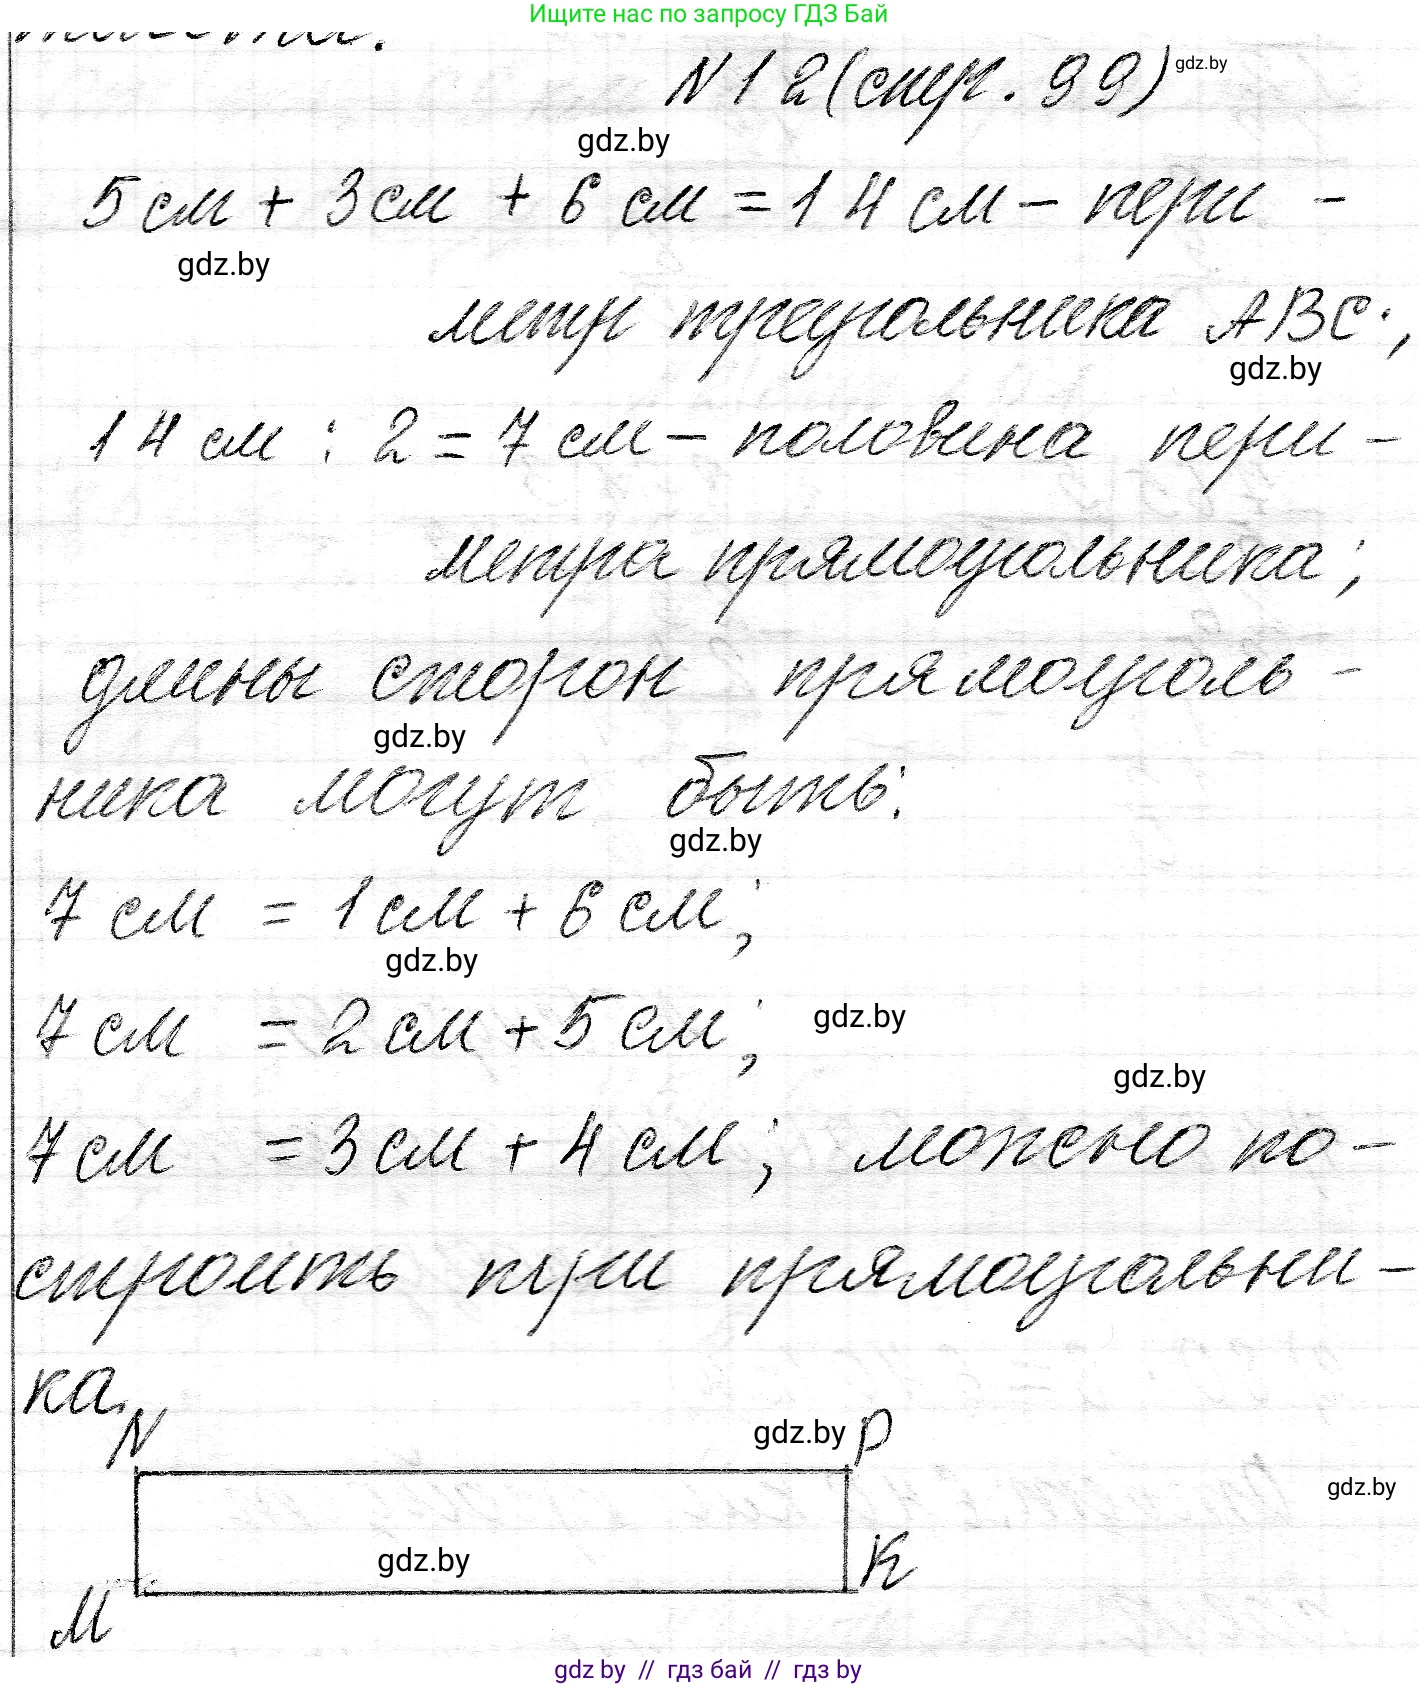 Ищите нас по запросу ГДЗ Бай
N12(стр. 99) gdz.by
gdz.by
5см + 3см + 6 см = 14 см - пери -
gdz.by
метр треугольника ABC;
gdz.by
14 см : 2 = 7 см - половина пери -
метра прямоугольника;
длины сторон прямоуголь -
gdz.by
ника могут быть:
gdz.by
7 см = 1см + 6 см;
gdz.by
7 см = 2см + 5 см; gdz.by
gdz.by
7см = 3см + 4 см; можно по-
строить три прямоугольни -
ка.
N gdz.by P
gdz.by
gdz.by K
M
gdz by // гдз бай // гдз by